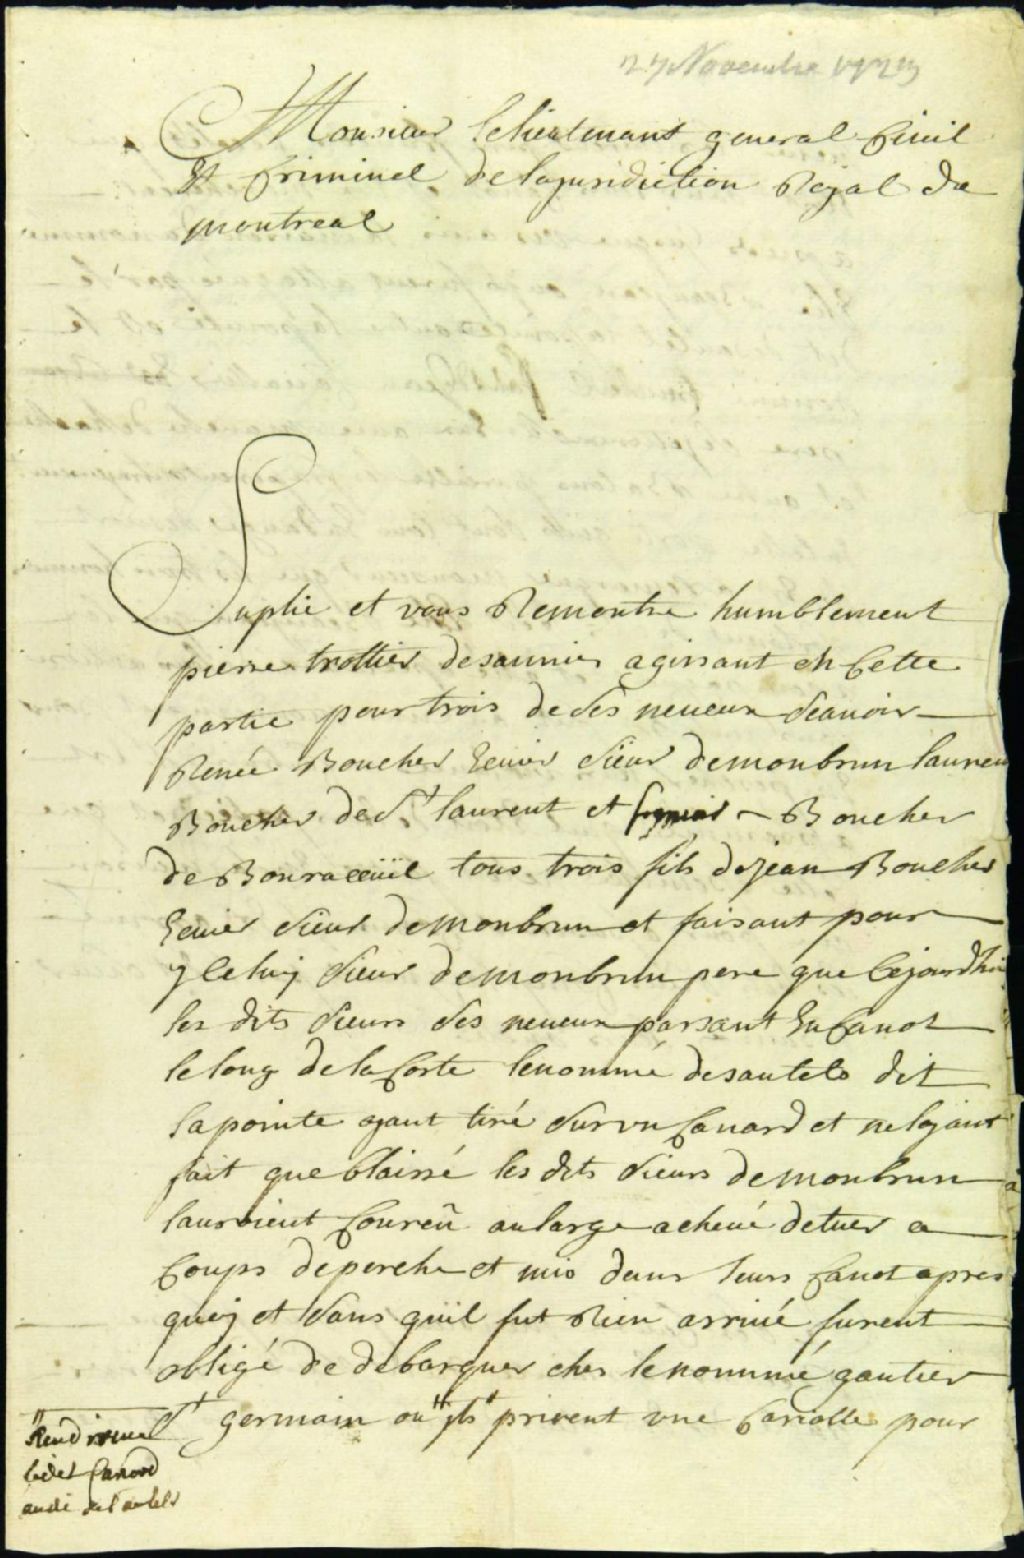 27 Novembre 1723
A Monsieur le lieutenant general Civil
Et Criminel de la jurisdiction Royal de
montreal
Suplie et vous Remontre humblement
pierre trottier desaunier agissant en Cette
partie pour trois de ses neveux scavoir
Renée Boucher Ecuier sieur de monbrun lauren
Boucher de St laurent et Boucher
de Bonracceüil tous trois fils de jean Boucher
Ecuier sieur de Monbrun et faisant pour
yceluy sieur de monbrun pere que Cejourdhui
les dits sieurs ses neveux passant En Canot
le long de la Coste le nommé desautels dit
lapointe ayant tiré sur un Canard et ne layant
fait que blaissé les dits sieurs de monbrun
lauroient Coureü au large achevé de tuer a
Coups de perche et mis dans leurs Canot apres
quoy et sans quil fut Rien arrivé furent
obligé de debarquer ches le nommé gautier
St germain ou " ils prirent une Cariolle pour
" Rendirent
ledit Canard
audi desautels